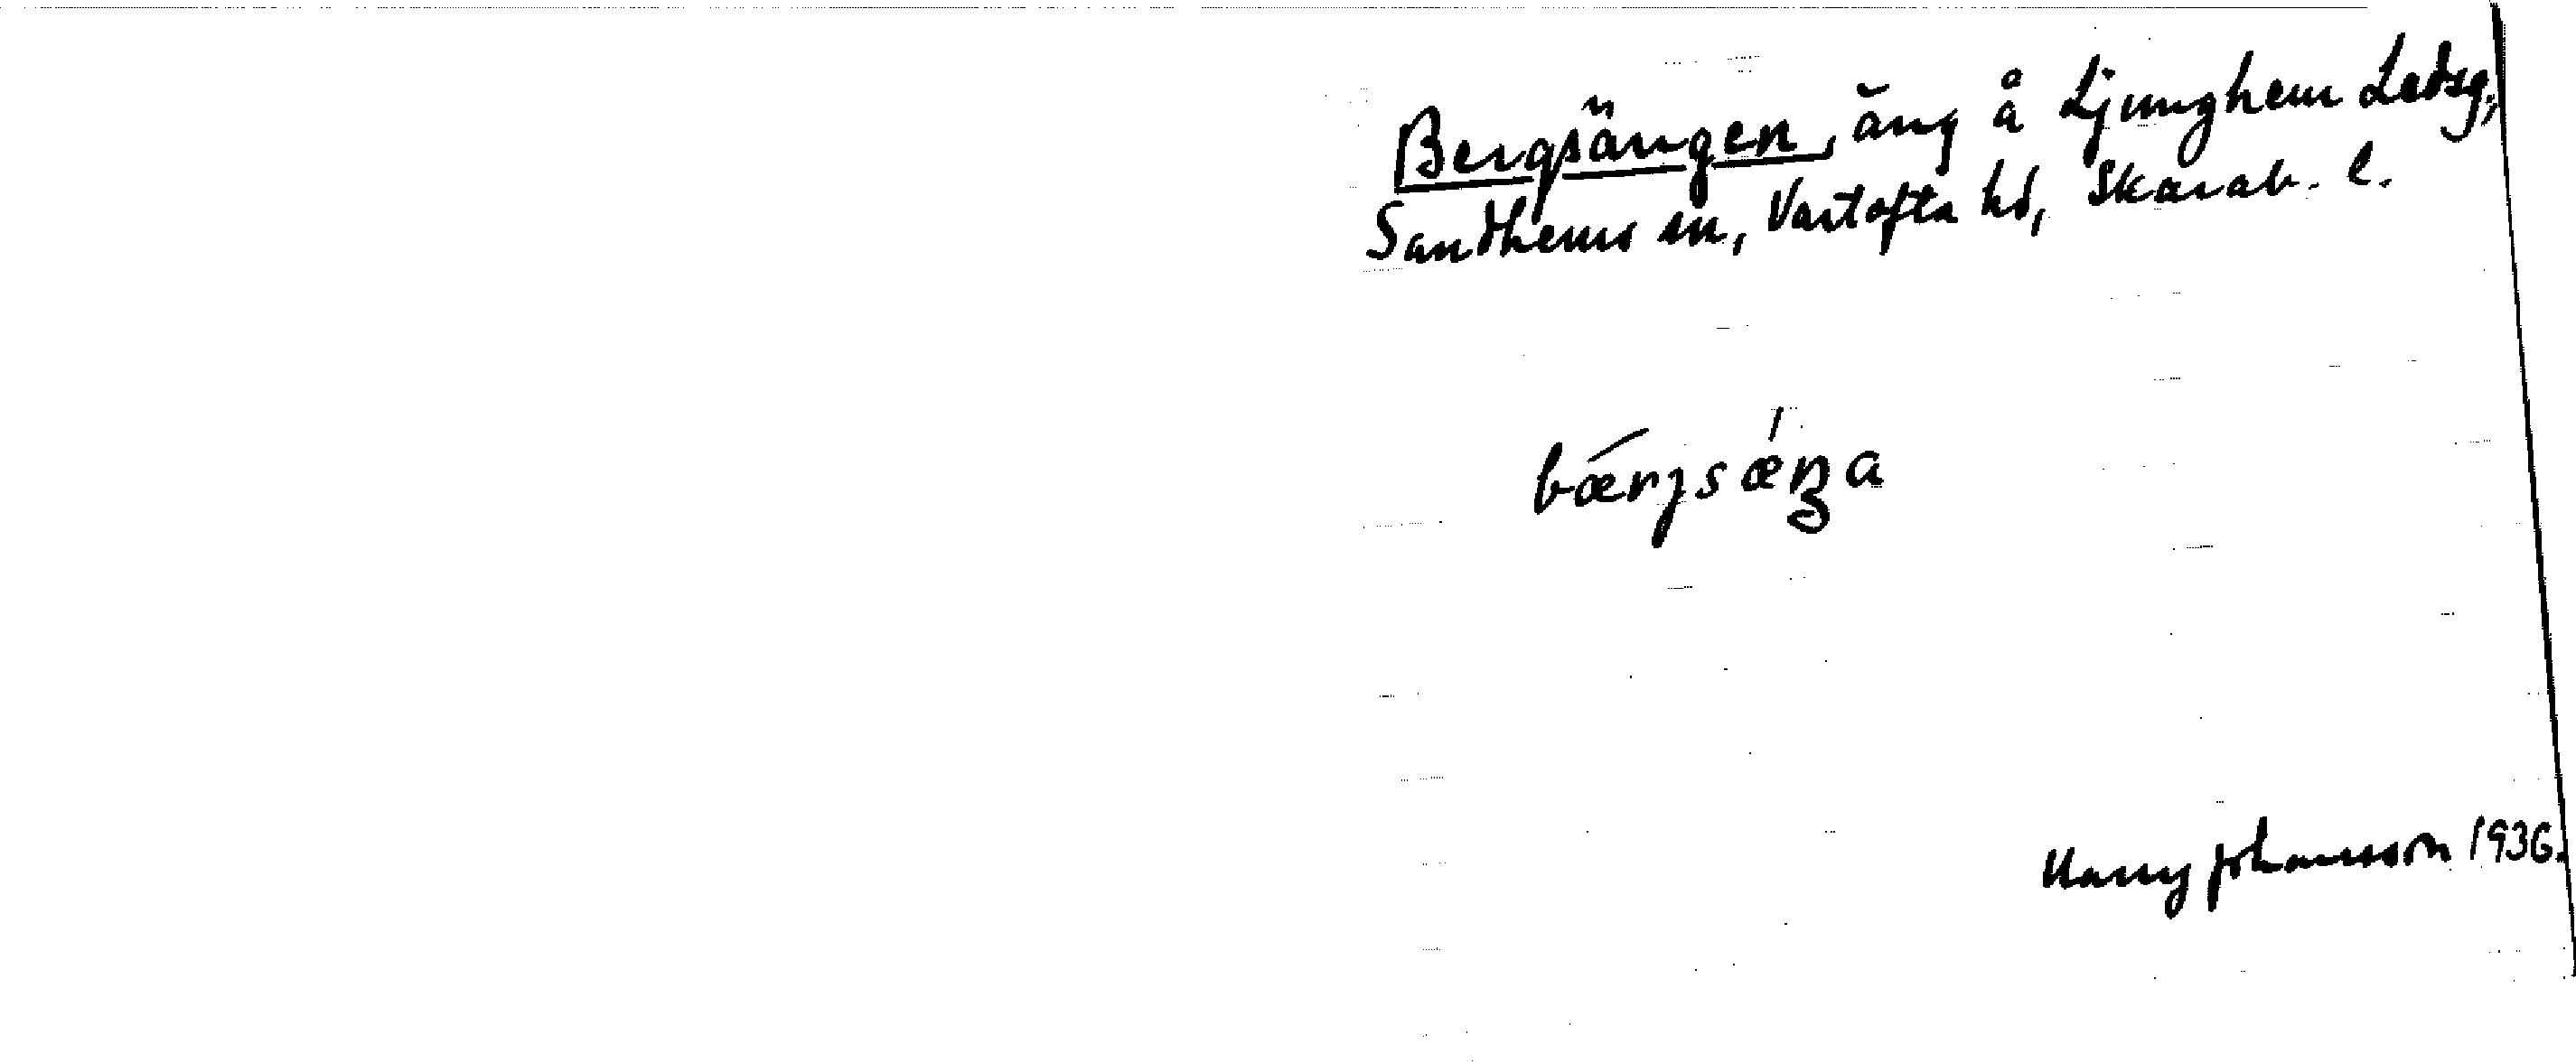 Bergsängen, äng å Ljunghem Ledsg,
Sandhems sn, Vartofta hd, Skarab. l.
bǽrjsǽŋa
Harry Johansson 1936.